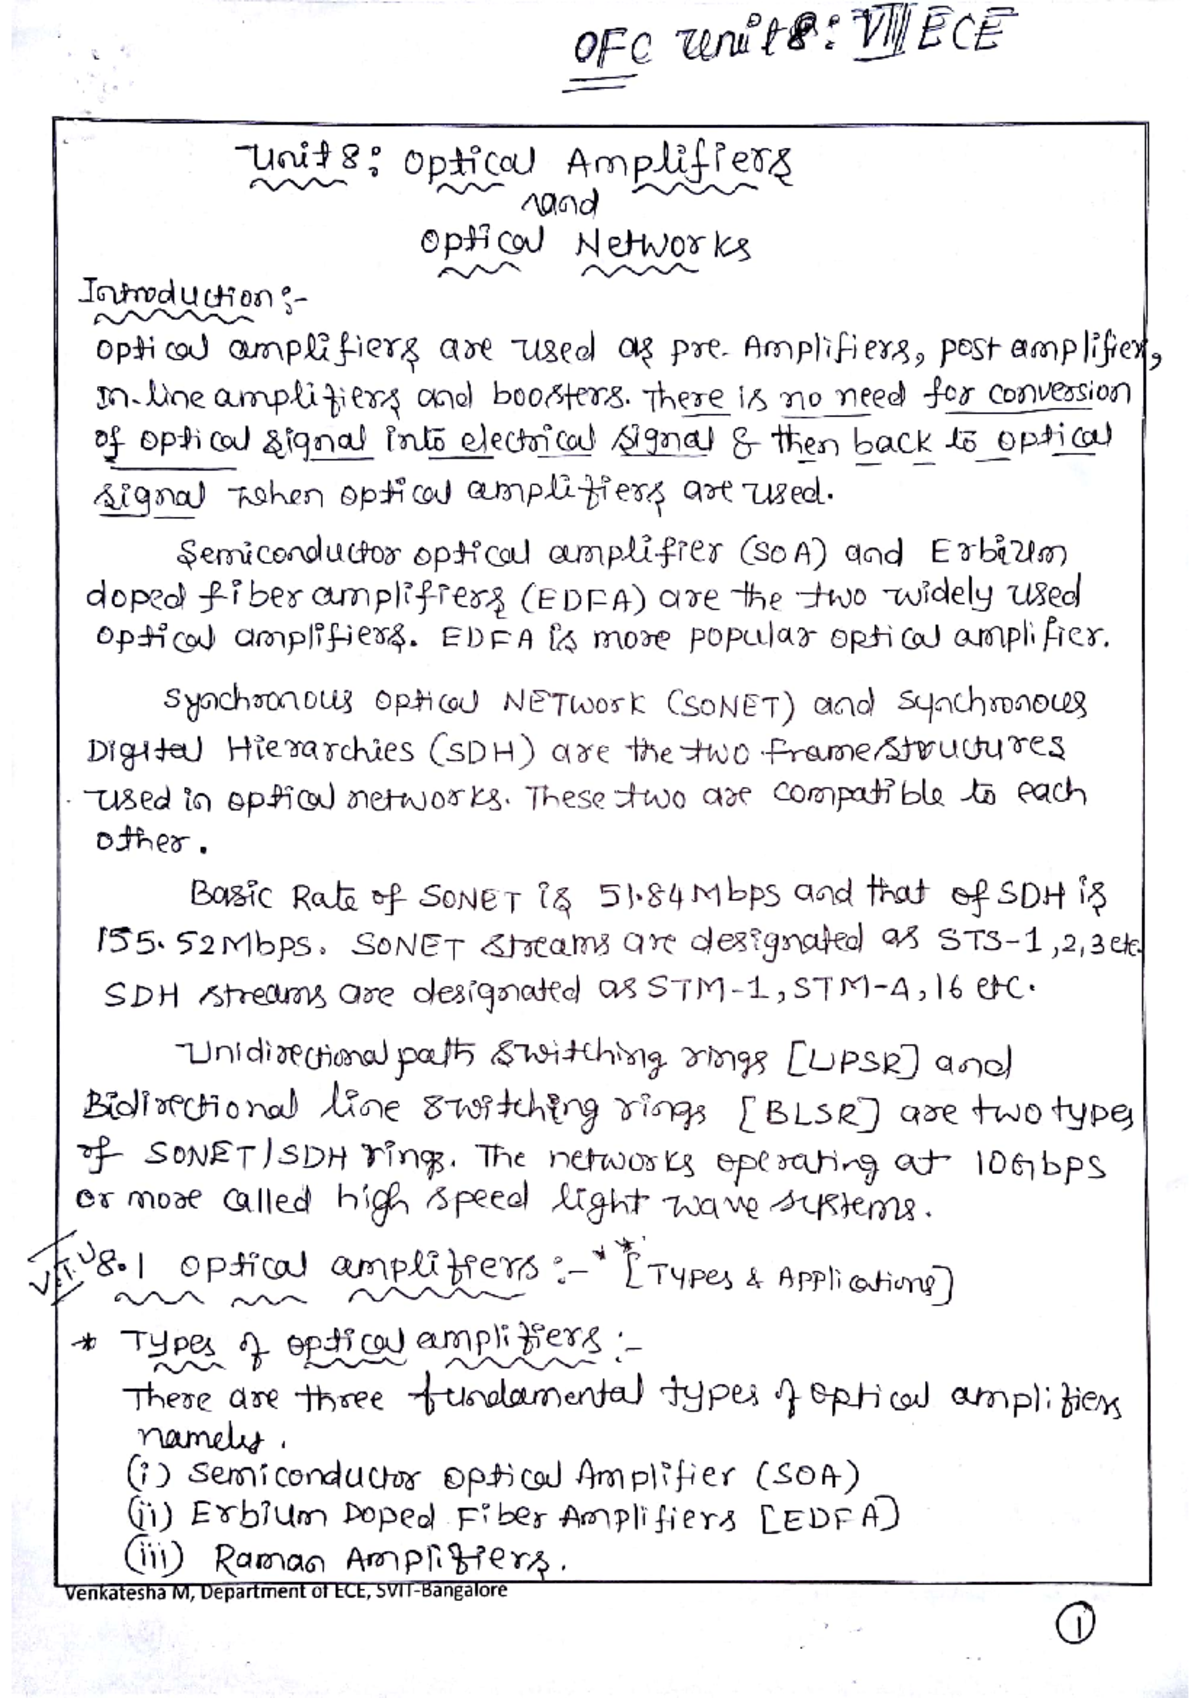 OFC Unit 8: VII ECE
Unit 8: Optical Amplifiers
and
Optical Networks
Introduction:-
Optical amplifiers are used as pre-Amplifiers, post amplifiers,
In-line amplifiers and boosters. There is no need for conversion
of optical signal into electrical signal & then back to optical
signal when optical amplifiers are used.
Semiconductor optical amplifier (SOA) and Erbium
doped fiber amplifiers (EDFA) are the two widely used
optical amplifiers. EDFA is more popular optical amplifier.
Synchronous Optical NETwork (SONET) and Synchronous
Digital Hierarchies (SDH) are the two frame structures
used in optical networks. These two are compatible to each
other.
Basic Rate of SONET is 51.84Mbps and that of SDH is
155.52Mbps. SONET streams are designated as STS-1,2,3 etc.
SDH streams are designated as STM-1, STM-4, 16 etc.
Unidirectional path switching rings [UPSR] and
Bidirectional line switching rings [BLSR] are two types
of SONET/SDH rings. The networks operating at 10Gbps
or more called high speed light wave systems.
V.T.U 8.1 Optical amplifiers:-** [Types & Applications]
* Types of optical amplifiers:-
There are three fundamental types of optical amplifiers
namely.
(i) Semiconductor Optical Amplifier (SOA)
(ii) Erbium Doped Fiber Amplifiers [EDFA]
(iii) Raman Amplifiers.
Venkatesha M, Department of ECE, SVIT-Bangalore
1